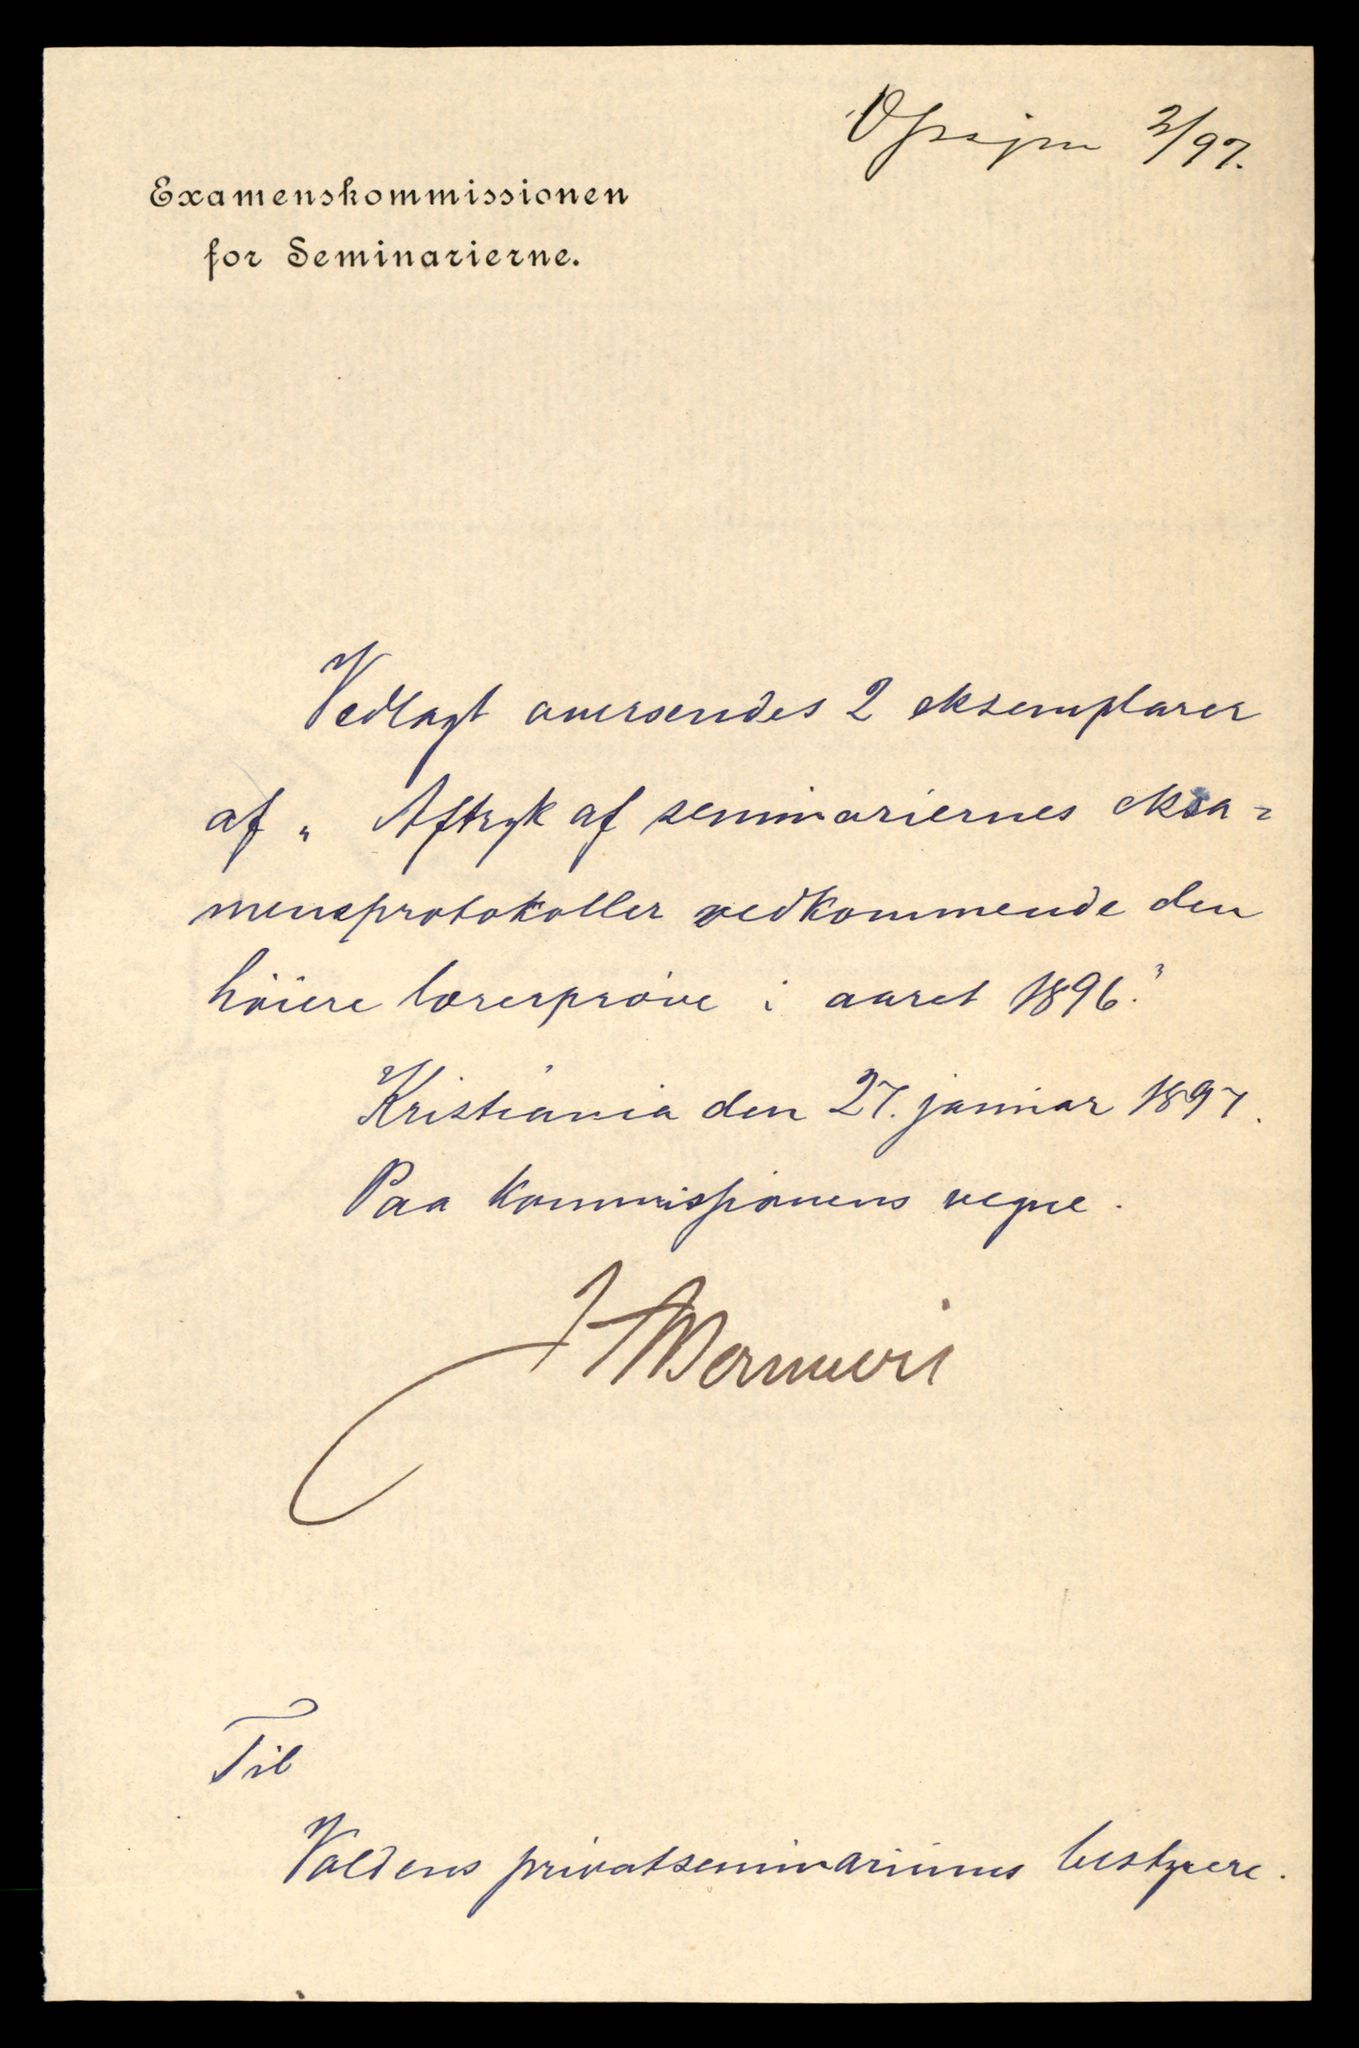 2/97.
Examenskommissionen
for Seminarierne.
Vedlagt oversendes 2 eksemplarer
af „ Aftryk af seminariernes eksa=
mensprotokoller vedkommende den
høiere lærerprøve i aaret 1896."
Kristiania den 27. januar 1897.
Paa kommissionens vegne.
Til
Voldens privatseminariums bestyrere.